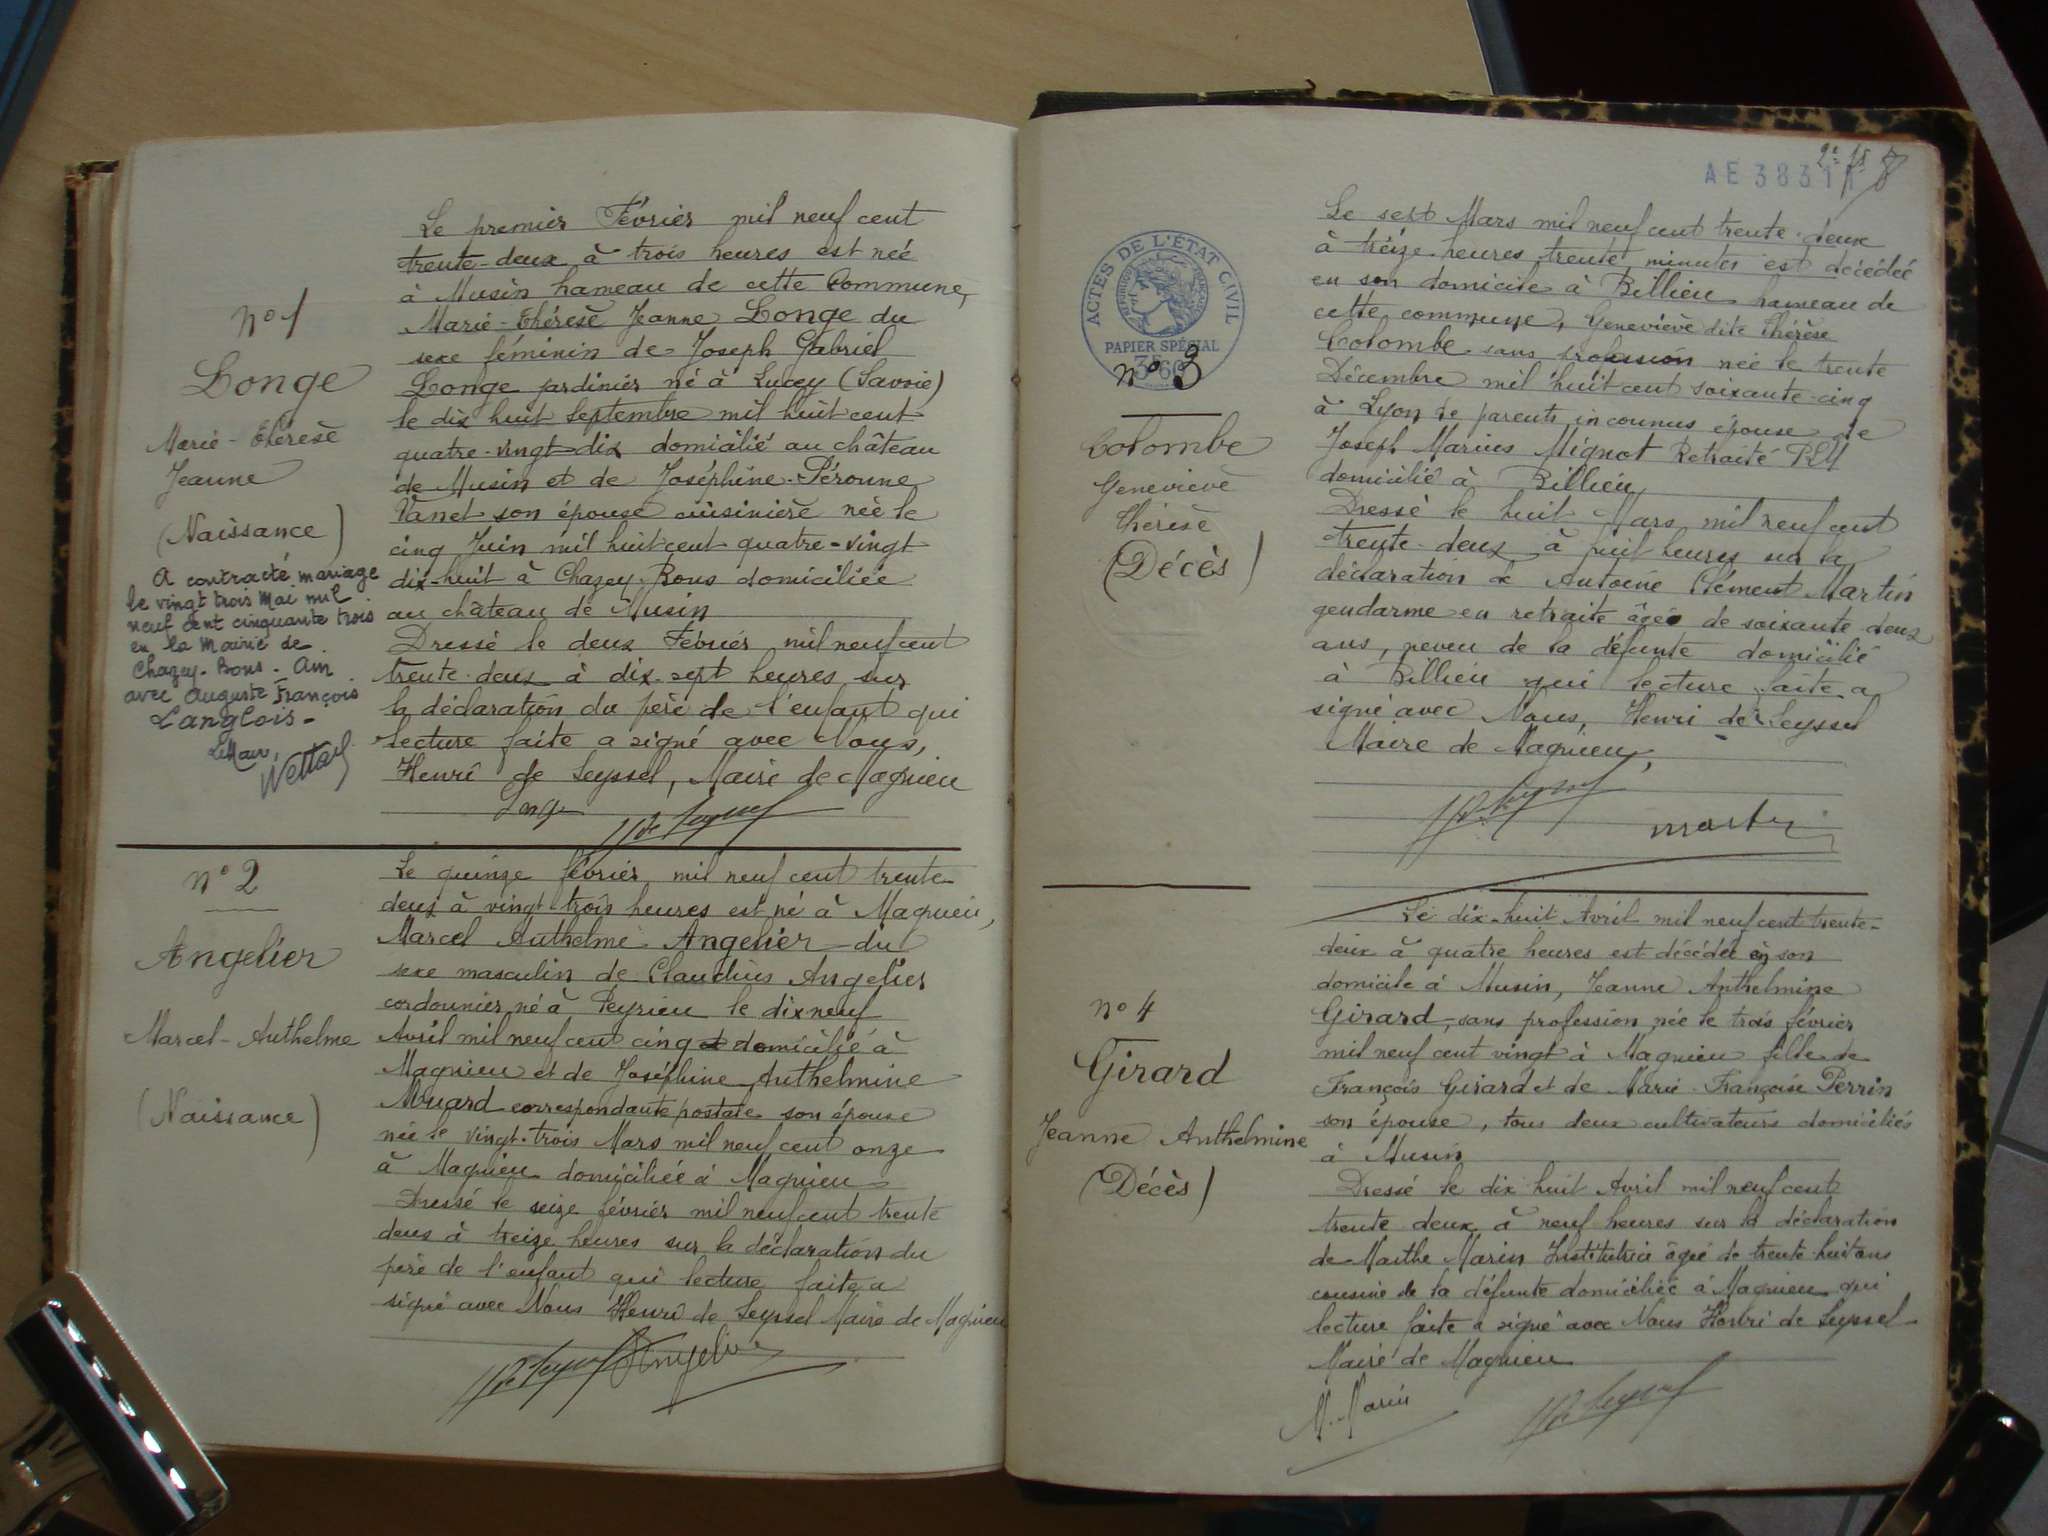 N° 1
Longe
Marie-Thérèse
Jeanne
(Naissance)
A contracté mariage
le vingt trois Mai mil
neuf cent cinquante trois
en la Mairie de
Chazey-Bons. Ain
avec Auguste François
Langlois-
Le Maire,
Le premier Février mil neuf cent
trente-deux à trois heures est née
à Musin hameau de cette Commune,
Marie-Thérèse Jeanne Longe du
sexe féminin de Joseph Gabriel
Longe jardinier né à Lucey (Savoie)
le dix huit Septembre mil huit cent
quatre-vingt-dix domicilié au château
de Musin et de Joséphine-Péroune
Vanet son épouse cuisinière née le
cinq Juin mil huit cent quatre-vingt
dix-huit à Chazey-Bons domiciliée
au château de Musin
Dressé le deux Février mil neuf cent
trente-deux à dix-sept heures sur
la déclaration du père de l'enfant qui
lecture faite a signé avec Nous,
Henri de Seyssel, Maire de Magnieu
Longe HdeSeyssel
N° 2
Angelier
Marcel-Anthelme
(Naissance)
Le quinze février mil neuf cent trente
deux à vingt-trois heures est né à Magnieu,
Marcel Anthelme Angelier du
sexe masculin de Claudius Angelier
cordonnier né à Peyrieu le dix neuf
Avril mil neuf cent cinq et domicilié à
Magnieu et de Joséphine Anthelmine
correspondante postale son épouse
née le vingt-trois Mars mil neuf cent onze
à Magnieu domiciliée à Magnieu
Dressé le seize février mil neuf cent trente
deux à treize heures sur la déclaration du
père de l'enfant qui lecture faite a
signé avec Nous Henri de Seyssel Maire de Magnieu
HdeSeyssel Angelier
AE 38311
ACTES DE L'ÉTAT CIVIL
PAPIER SPÉCIAL
N° 3
Colombe
Geneviève
Thérèse
(Décès)
Le sept Mars mil neuf cent trente-deux
à treize heures trente minutes est décédée
en son domicile à Billieu hameau de
cette commune, Geneviève dite Thérèse
Colombe sans profession née le trente
Décembre mil huit cent soixante-cinq
à Lyon de parents inconnus épouse de
Joseph Marius Mignot Retraité PLM
domicilié à Billieu
Dressé le huit Mars mil neuf cent
trente-deux à huit heures sur la
déclaration de Antoine Clément Martin
gendarme en retraite âgé de soixante-deux
ans, neveu de la défunte domicilié
à Billieu qui lecture faite a
signé avec Nous, Henri de Seyssel
Maire de Magnieu,
HdeSeyssel Martin
N° 4
Girard
Jeanne Anthelmine
(Décès)
Le dix-huit Avril mil neuf cent trente-
deux à quatre heures est décédée en son
domicile à Musin, Jeanne Anthelmine
Girard, sans profession née le trois février
mil neuf cent vingt à Magnieu fille de
François Girard et de Marie-Françoise Perrin
son épouse, tous deux cultivateurs domiciliés
à Musin
Dressé le dix huit Avril mil neuf cent
trente-deux à neuf heures sur la déclaration
de Marthe Marin Institutrice âgée de trente huit ans
cousine de la défunte domiciliée à Magnieu qui
lecture faite a signé avec Nous Henri de Seyssel
Maire de Magnieu
M. Marin HdeSeyssel